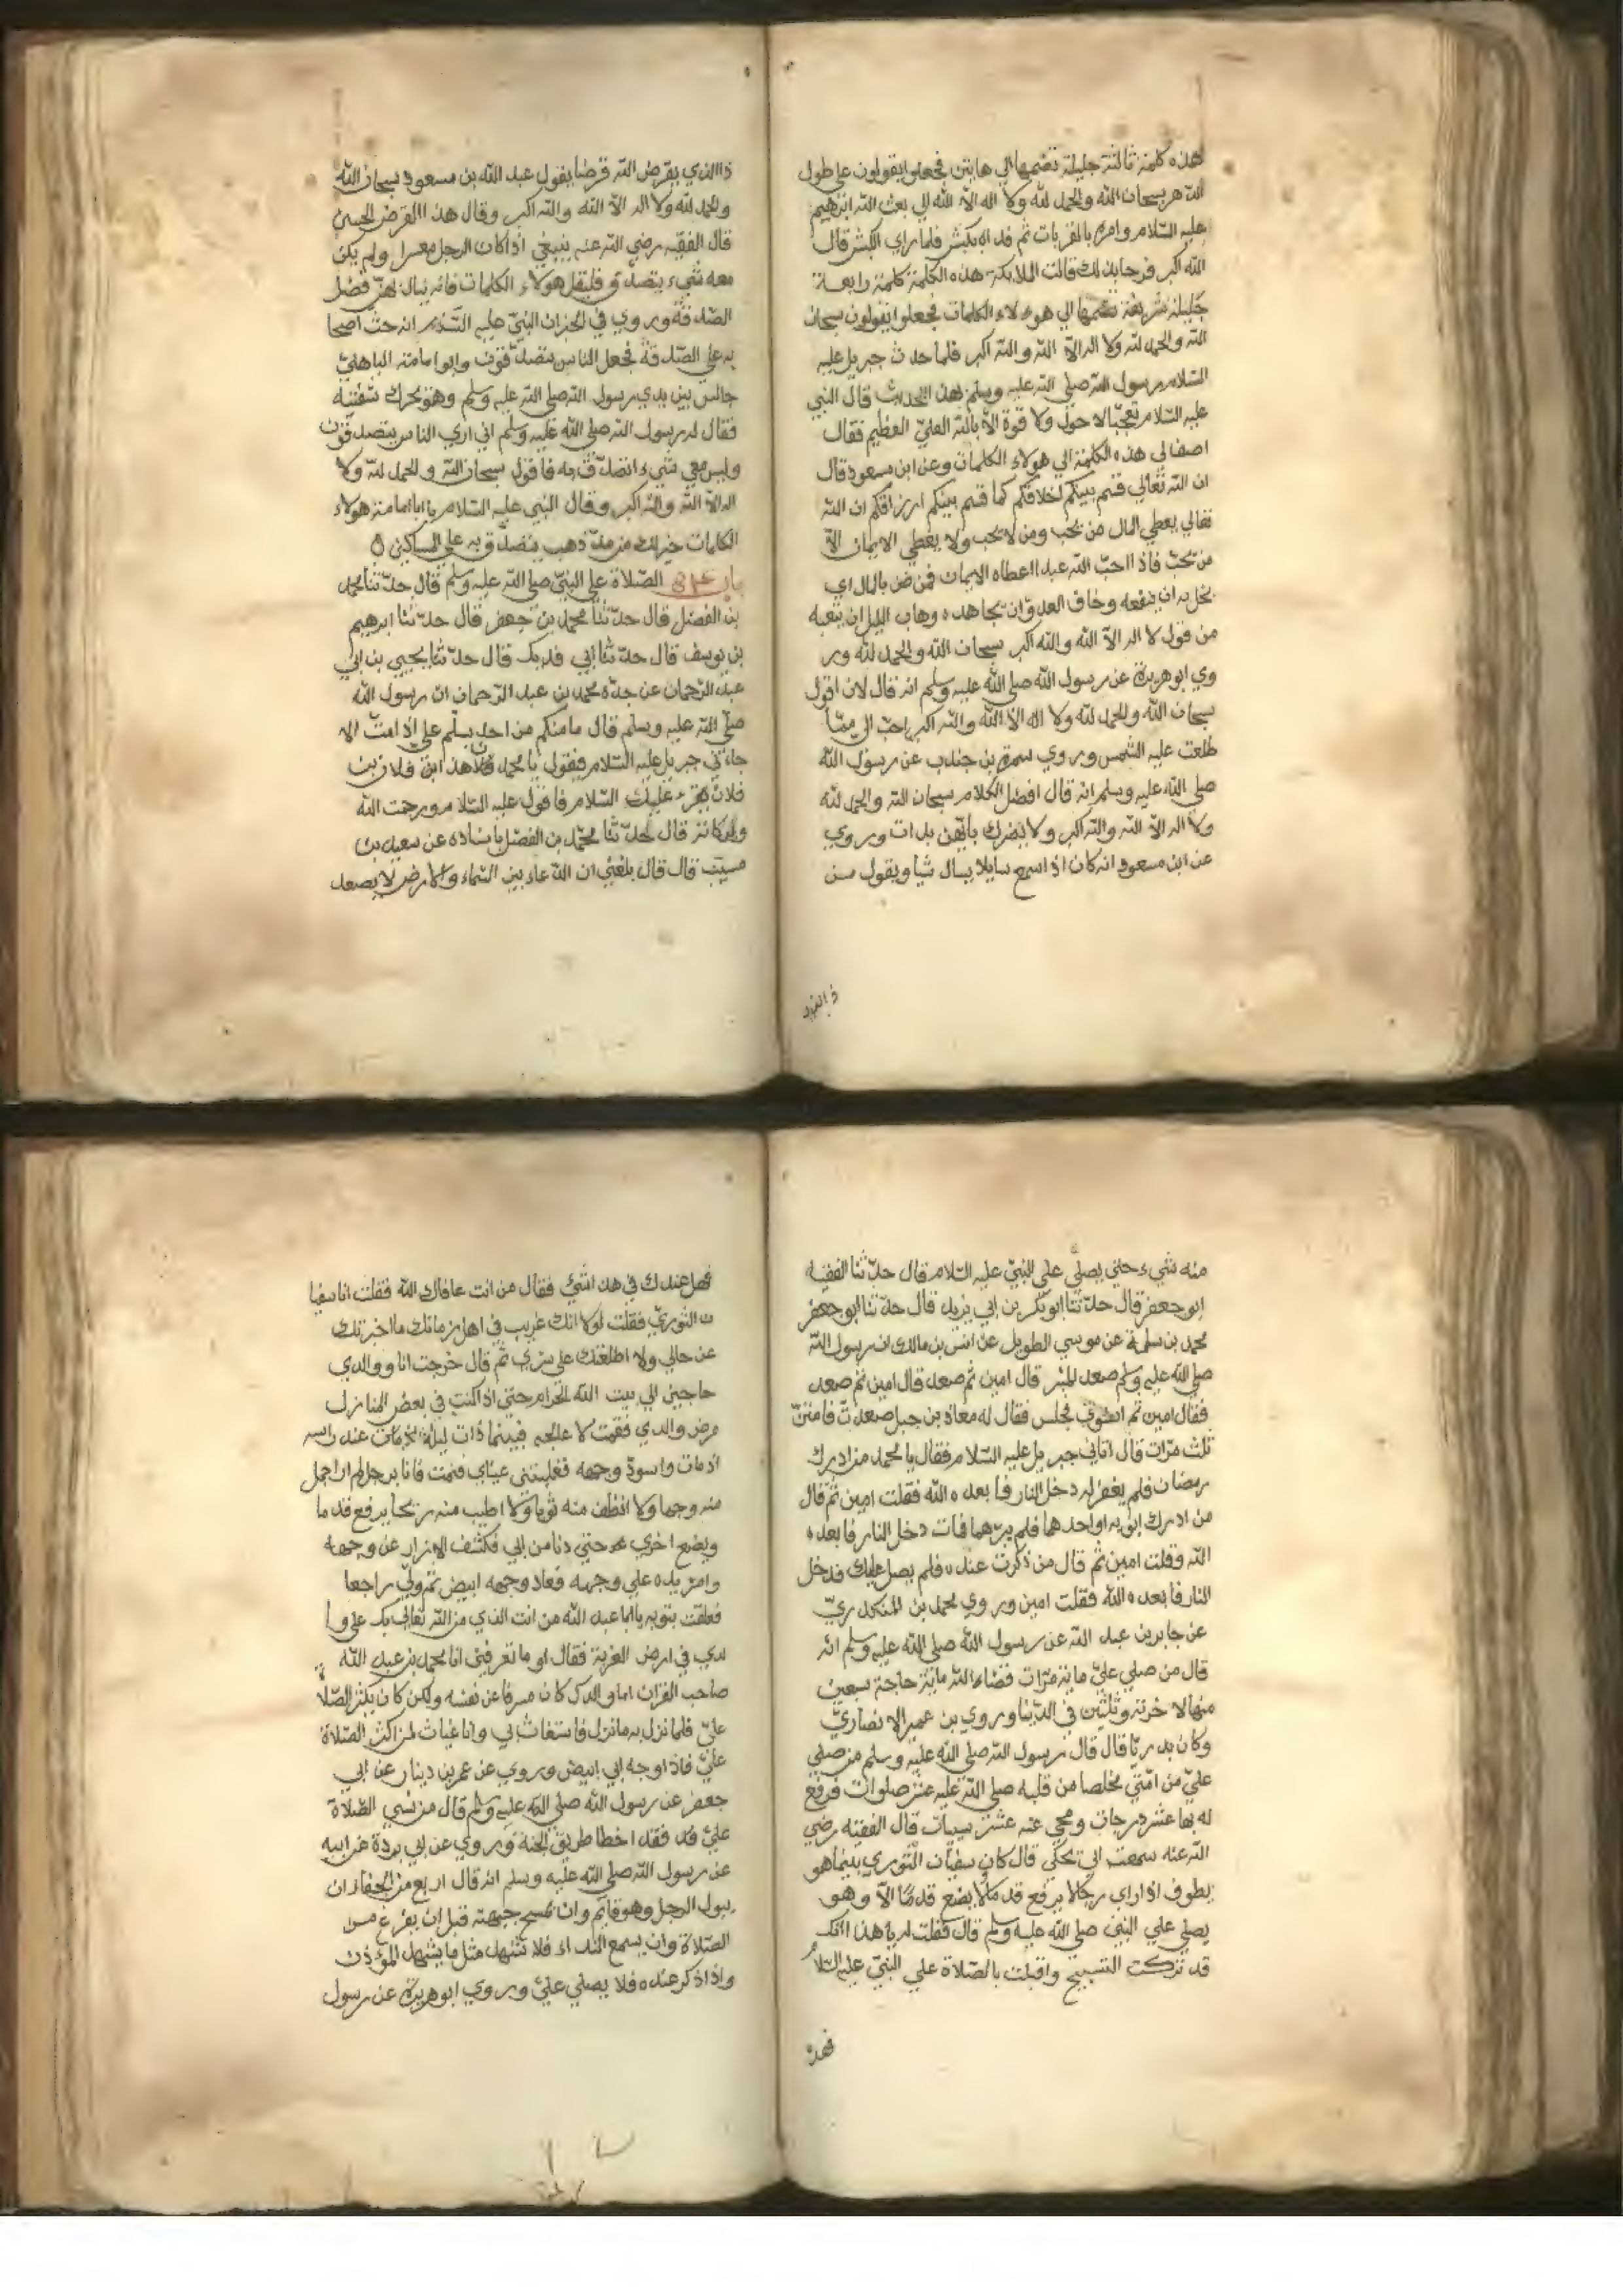 هذه كلمة ثالثة جليلة تضمها الي هاتين فجعلوا يقولون علي طول
الدهر سبحان الله والحمد لله ولا اله الا الله الي بعث الله ابرهيم
عليه السلام وامره بالقربات ثم فداه بكبش فلما راي الكبش قال
الله اكبر فرحا بذلك قالت الملايكة هذه الكلمة كلمة رابعة
جليلة شريفة تضمها الي هولاء الكلمات فجعلوا يقولون سبحان
الله والحمد لله ولا اله الا الله والله اكبر فلما حدث جبريل عليه
السلام رسول الله صلي الله عليه وسلم بهذا الحديث قال النبي
عليه السلام تعجبا لا حول ولا قوة الا بالله العلي العظيم فقال
اصف لي هذه الكلمة الي هولاء الكلمات وعن ابن مسعود قال
ان الله تعالي قسم بينكم اخلاقكم كما قسم بينكم ارزاقكم ان الله
تعالي يعطي المال من يحب ومن لا يحب ولا يعطي الايمان الا
من يحب فاذا احب الله عبدا اعطاه الايمان فمن ضن بالمال اي
بخل به ان ينفعه وخاف العدو ان يجاهده وهاب الليل ان يتعبه
من قول لا اله الا الله والله اكبر سبحان الله والحمد لله ور
وي ابوهريرة عن رسول الله صلي الله عليه وسلم انه قال لان اقول
سبحان الله والحمد لله ولا اله الا الله والله اكبر احب الي مما
طلعت عليه الشمس وروي سمرة بن جندب عن رسول الله
صلي الله عليه وسلم انه قال افضل الكلام سبحان الله والحمد لله
ولا اله الا الله والله اكبر ولا يضرك بايهن بدات وروي
عن ابن مسعود انه كان اذا سمع سايلا يسال شيا ويقول من
ذا الذي
ذا الذي يقرض الله قرضا يقول عبد الله بن مسعود سبحان الله
والحمد لله ولا اله الا الله والله اكبر وقال هذا القرض الحسن
قال الفقيه رضي الله عنه ينبغي اذا كان الرجل معسرا ولم يكن
معه شيء يتصدق فليقل هولاء الكلمات فانه ينال بهن فضل
الصدقة وروي في الخبر ان النبي عليه السلام انه حث اصحا
به علي الصدقة فجعل الناس يتصدقون وابوامامة الباهلي
جالس بين يدي رسول الله صلي الله عليه وسلم وهو يحرك شفتيه
فقال له رسول الله صلي الله عليه وسلم اني اري الناس يتصدقون
وليس معي شيء اتصدق به فاقول سبحان الله والحمد لله ولا
اله الا الله والله اكبر وقال النبي عليه السلام يا اباامامة هولاء
الكلمات خير لك من مد ذهب يتصدق به علي المساكين
باب الصلاة علي النبي صلي الله عليه وسلم قال حدثنا محمد
بن الفضل قال حدثنا محمد بن جعفر قال حدثنا ابرهيم
بن يوسف قال حدثنا ابي فديك قال حدثنا يحيي بن ابي
عبد الرحمان عن جده محمد بن عبد الرحمان ان رسول الله
صلي الله عليه وسلم قال ما منكم من احد يسلم علي اذا مت الا
جاءني جبريل عليه السلام فيقول يا محمد هذا ابن فلان بن
فلان يقرء عليك السلام فاقول عليه السلام ورحمت الله
وبركاته قال حدثنا محمد بن الفضل باسناده عن سعيد بن
مسيب قال قال بلغني ان الدعاء بين السماء والارض لا يصعد
منه شيء حتي يصلي علي النبي عليه السلام قال حدثنا الفقيه
ابوجعفر قال حدثنا ابوبكر بن ابي يزيد قال حدثنا ابوجعفر
محمد بن سلمة عن موسي الطويل عن انس بن مالك ان رسول الله
صلي الله عليه وسلم صعد المنبر قال امين ثم صعد قال امين ثم صعد
فقال امين ثم استوي فجلس فقال له معاذ بن جبل صعدت فامنت
ثلث مرات قال اتاني جبريل عليه السلام فقال يا محمد من ادرك
رمضان فلم يغفر له دخل النار فابعده الله فقلت امين ثم قال
من ادرك ابويه او احدهما فلم يبرهما فمات دخل النار فابعده
الله وقلت امين ثم قال من ذكرت عنده فلم يصل عليك فدخل
النار فابعده الله فقلت امين وروي محمد بن المنكدري
عن جابر بن عبد الله عن رسول الله صلي الله عليه وسلم انه
قال من صلي علي ماية مرات قضاء الله ماية حاجة سبعين
منها لاخرته وثلثين في الدنيا وروي بن عمير الانصاري
وكان بدريا قال قال رسول الله صلي الله عليه وسلم من صلي
علي من امتي مخلصا من قلبه صلي الله عليه عشر صلوات فرفع
له بها عشر درجات ومحي عنه عشر سيات قال الفقيه رضي
الله عنه سمعت ابي يحكي قال كان سفيان الثوري بينما هو
يطوف اذا راي رجلا يرفع قدما ولا يضع قدما الا وهو
يصلي علي النبي صلي الله عليه وسلم قال فقلت له يا هذا انك
قد تركت التسبيح واقبلت بالصلاة علي النبي عليه السلام
فهل
فهل عندك في هذا شيء فقال من انت عافاك الله فقلت انا سفيا
ن الثوري فقلت لولا انك غريب في اهل زمانك ما اخبرتك
عن حالي ولا اطلعتك علي سري ثم قال خرجت انا ووالدي
حاجين الي بيت الله الحرام حتي اذا كنت في بعض المنازل
مرض والدي فقمت لا عالجه فبينما ذات ليلة عند راسه
اذ مات واسود وجهه فغلبتني عيناي فنمت فانا برجل لم ار اجمل
منه وجها ولا انظف منه ثوبا ولا اطيب منه ريحا يرفع قدما
ويضع اخري حتي دنا من ابي فكشف الازار عن وجهه
وامر يده علي وجهه فعاد وجهه ابيض ثم ولي راجعا
فعلقت بثوبه يا عبد الله من انت الذي من الله تعالي بك علي وا
لدي في ارض الغربة فقال او ما تعرفني انا محمد بن عبد الله
صاحب القران اما والدك كان مسرفا عن نفسه ولكن كان يكثر الصلا
علي فلما نزل به ما نزل فاستغاث لي وانا غياث لمن اكثر الصلاة
علي فاذا وجه ابي ابيض وروي عن عمر بن دينار عن ابي
جعفر عن رسول الله صلي الله عليه وسلم قال من نسي الصلاة
علي قد فقد اخطا طريق الجنة وروي عن ابي بردة عن ابيه
عن رسول الله صلي الله عليه وسلم انه قال اربع من الجفا ان
يبول الرجل وهو قايم وان يمسح جبهته قبل ان يفرغ من
الصلاة وان يسمع النداء فلا يشهد مثل ما يشهد المؤذن
واذا ذكر عنده فلا يصلي علي وروي ابوهريرة عن رسول